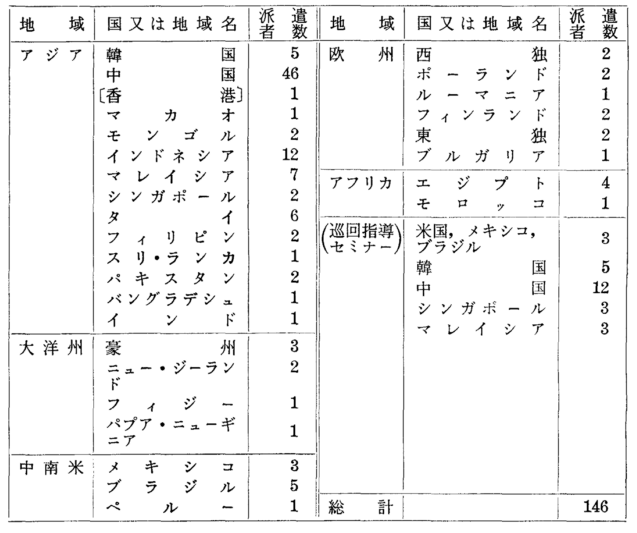 地域 国又は地域名 派遣者数
アジア 韓国 5
中国 46
〔香港〕 1
マカオ 1
モンゴル 2
インドネシア 12
マレイシア 7
シンガポール 2
タイ 6
フィリピン 2
スリ・ランカ 1
パキスタン 2
バングラデシュ 1
インド 1
大洋州 豪州 3
ニュー・ジーラン
ド 2
フィジー 1
パプア・ニューギ
ニア 1
中南米 メキシコ 3
ブラジル 5
ペルー 1
地域 国又は地域名 派遣者数
欧州 西独 2
ポーランド 2
ルーマニア 1
フィンランド 2
東独 2
ブルガリア 1
アフリカ エジプト 4
モロッコ 1
(巡回指導セミナー) 米国,メキシコ,
ブラジル 3
韓国 5
中国 12
シンガポール 3
マレイシア 3
総計 146